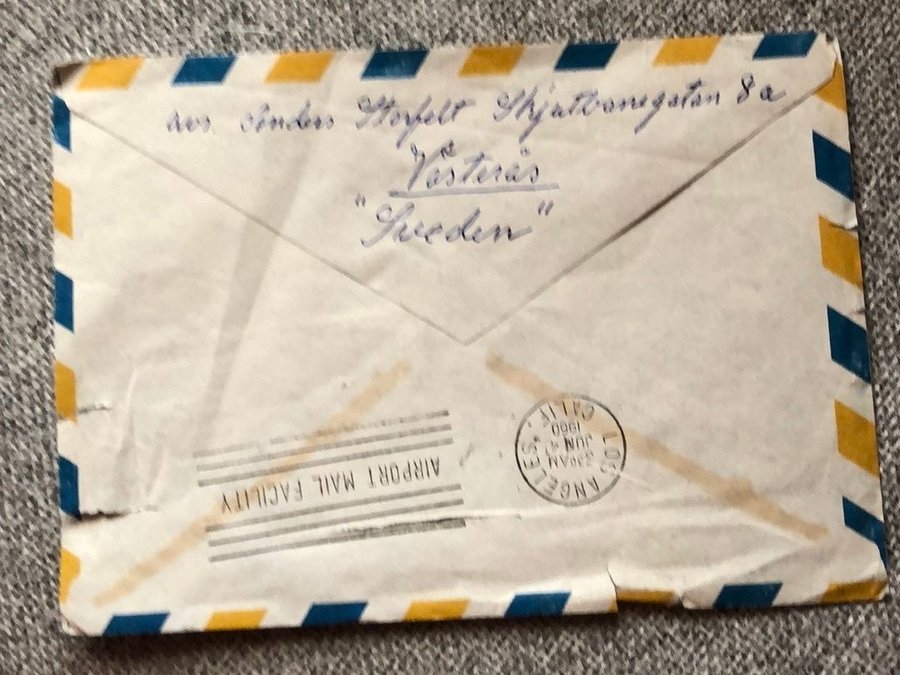 avs Anders Storfelt Skjutbanegatan 8a
Västerås
"Sweden"
AIRPORT MAIL FACILITY
LOS ANGELES, CALIF.
JUN
1960